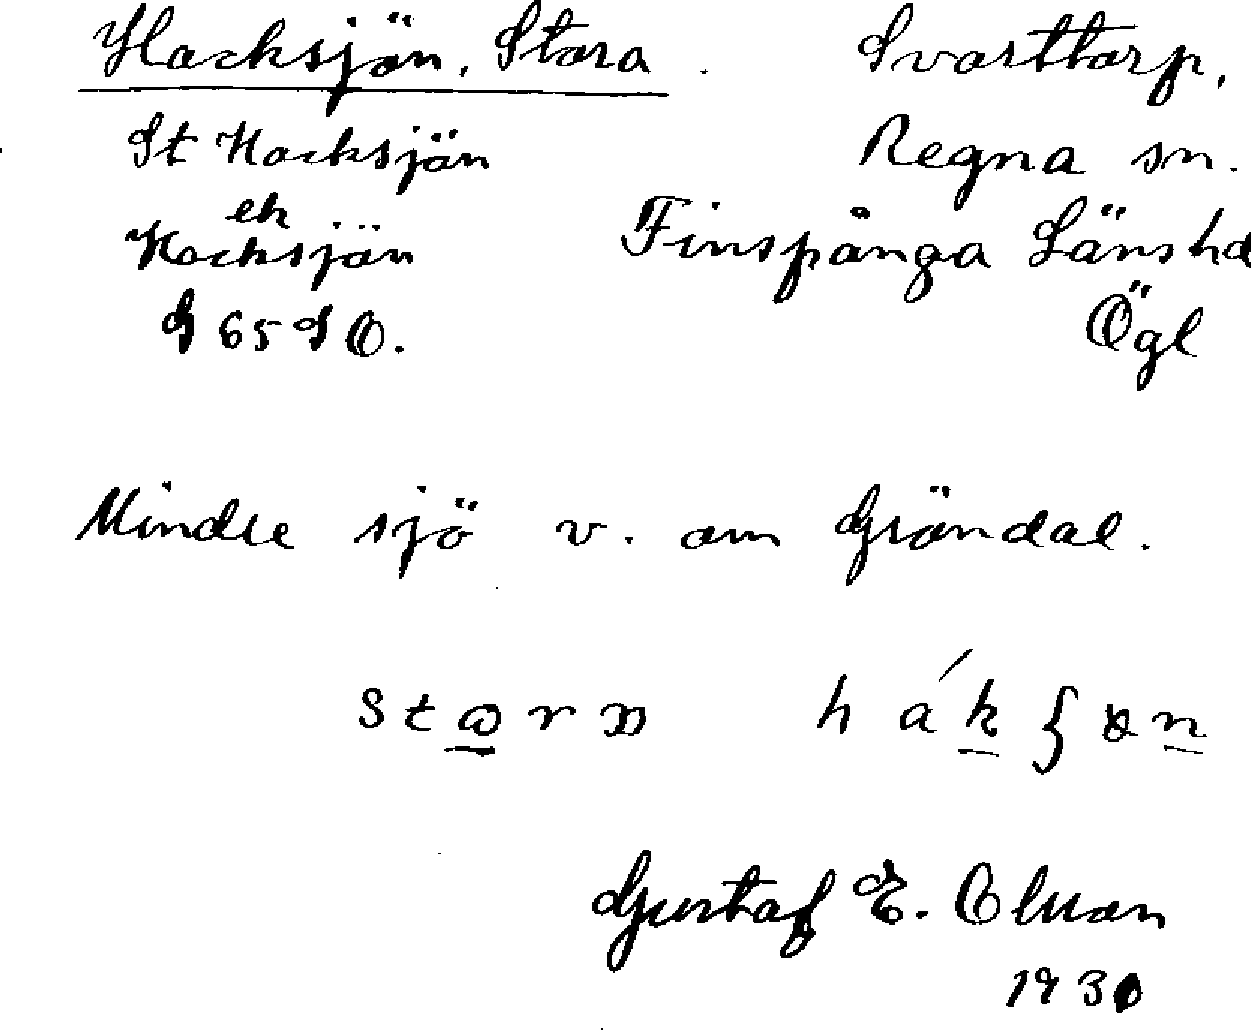 Hacksjön, Stora. Svarttorp,
St Hacksjön Regna sn.
ek
Hacksjön Finspånga Länshd
G 65 SO. Ögl
Mindre sjö v. om Gröndal.
Gustaf E. Olsson
1930